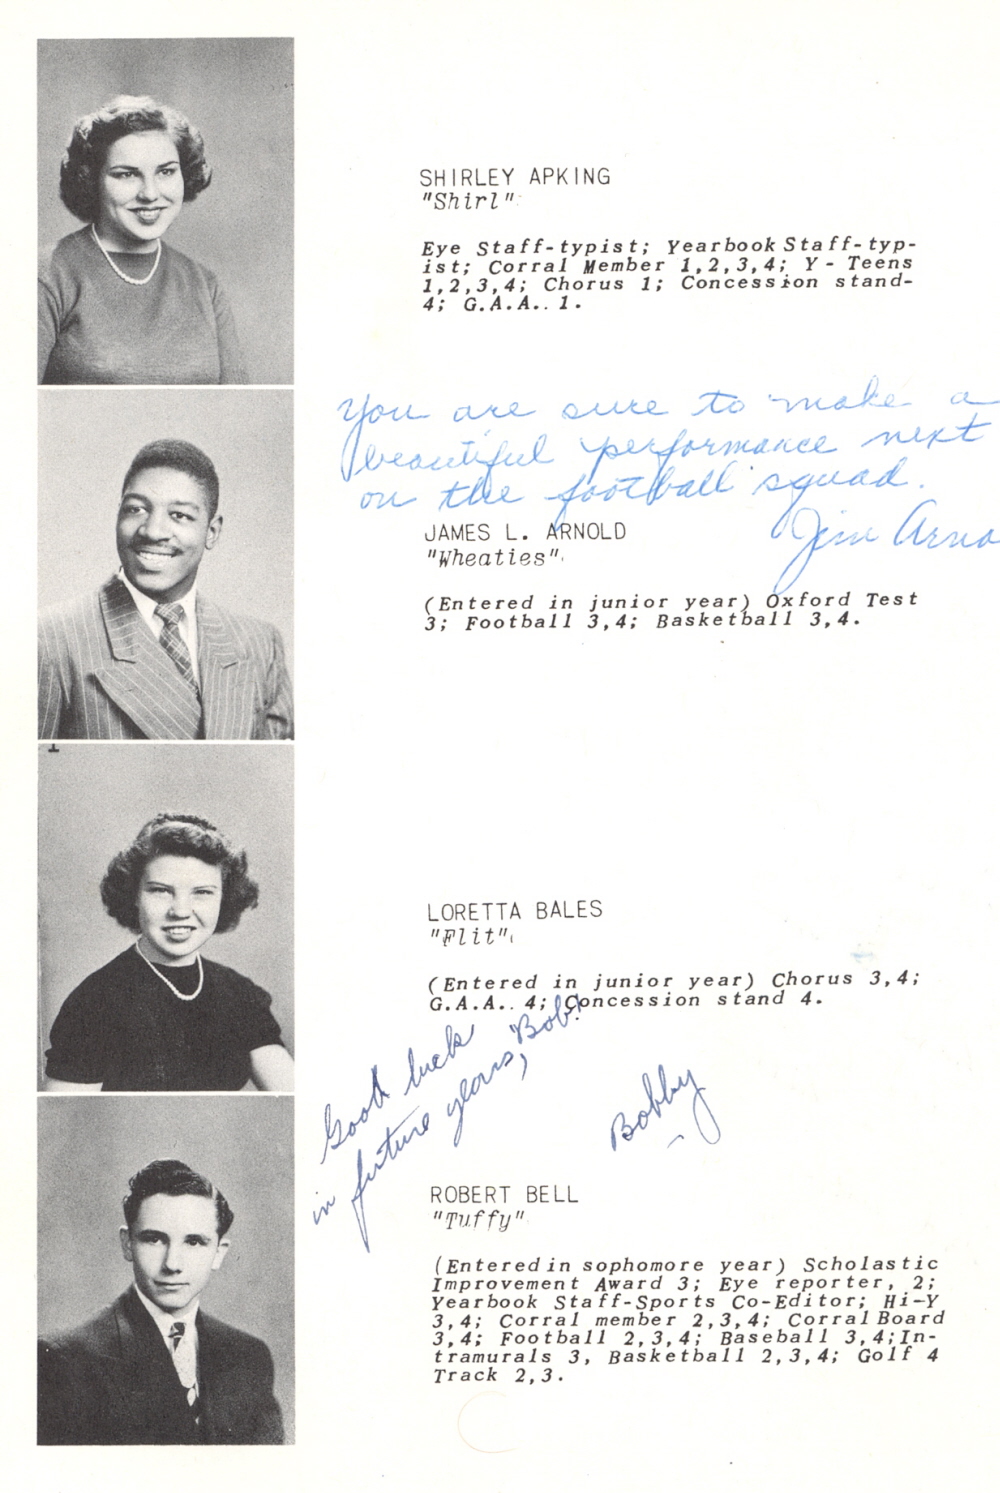 SHIRLEY APKING
"Shirl"
Eye Staff-typist; Yearbook Staff-typ-
ist; Corral Member 1,2,3,4; Y - Teens
1,2,3,4; Chorus 1; Concession stand-
4; G.A.A.. 1.
You are sure to make a
beautiful performance next
on the football squad.
Jim Arno
JAMES L. ARNOLD
"Wheaties"
(Entered in junior year) Oxford Test
3; Football 3,4; Basketball 3,4.
LORETTA BALES
"Flit"
(Entered in junior year) Chorus 3,4;
G.A.A.. 4; Concession stand 4.
Good luck
in future years, "Bob."
Bobby
ROBERT BELL
"Tuffy"
(Entered in sophomore year) Scholastic
Improvement Award 3; Eye reporter, 2;
Yearbook Staff-Sports Co-Editor; Hi-Y
3,4; Corral member 2,3,4; Corral Board
3,4; Football 2,3,4; Baseball 3,4; In-
tramurals 3, Basketball 2,3,4; Golf 4
Track 2,3.